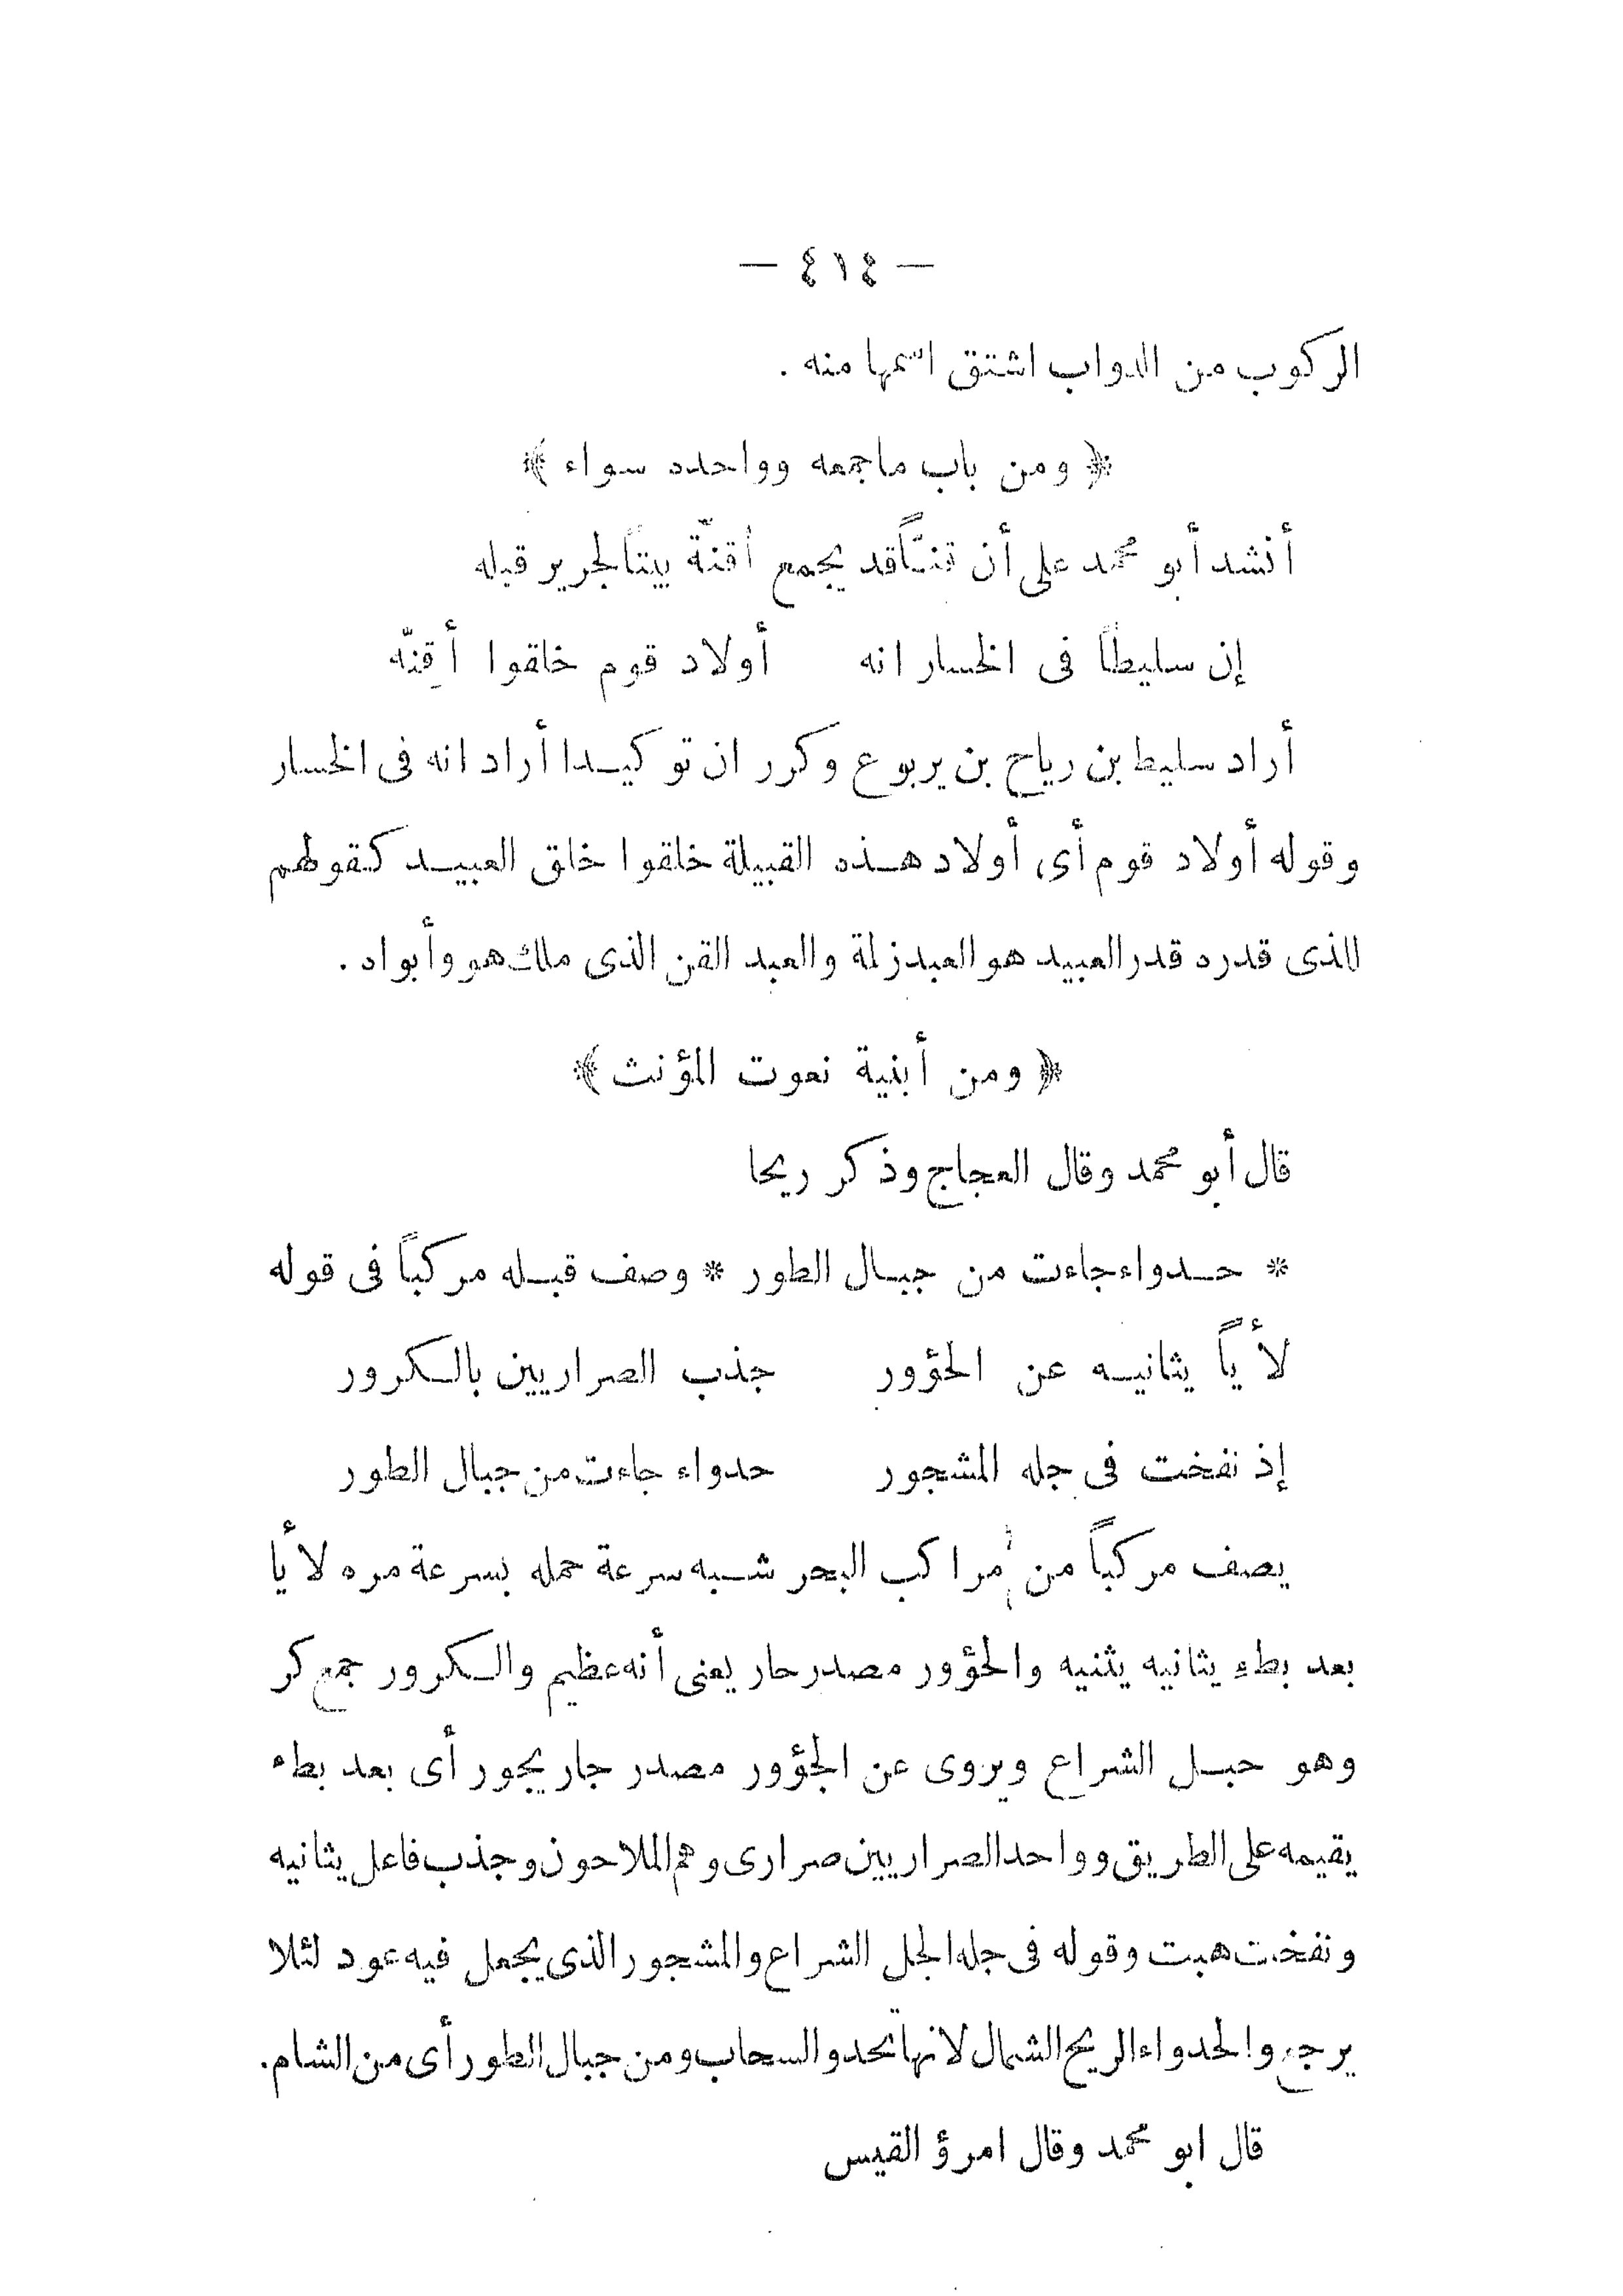 — ٤١٤ —
الركوب من الدواب اشتق اسمها منه .
﴿ ومن باب ماجمعه وواحده سواء ﴾
أنشد أبو محمد على أن قنـّاً قد يجمع أقنّة بيتاً لجرير قبله
إن سليطاً فى الخسار انه أولاد قوم خلقوا أقِنّه
أراد سليط بن رياح بن يربوع وكرر ان توكيـدا أراد انه فى الخسار
وقوله أولاد قوم أى أولاد هـذه القبيلة خلقوا خلق العبيـد كـقولهم
للذى قدره قدر العبيد هو العبد زلمة والعبد القن الذى ملك هو وأبواه .
﴿ ومن أبنية نعوت المؤنث ﴾
قال أبو محمد وقال العجاج وذكر ريحا
* حـدواء جاءت من جبـال الطور * وصف قبـله مركباً فى قوله
لأياً يثانيـه عن الحؤور جذب الصراريين بالـكرور
إذ نفخت فى جله المشجور حدواء جاءت من جبال الطور
يصف مركباً من مراكب البحر شـبه سرعة حمله بسرعة مره لأيا
بعد بطء يثانيه يثنيه والحؤور مصدر حار يعنى أنه عظيم والـكرور جمع كر
وهو حبـل الشراع ويروى عن الجؤور مصدر جار يجور أى بعد بطء
يقيمه على الطريق وواحد الصراريين صرارى وهم الملاحون وجذب فاعل يثانيه
ونفخت هبت وقوله فى جله الجل الشراع والمشجور الذى يجعل فيه عود لئلا
يرجع والحدواء الريح الشمال لانها تحدو السحاب ومن جبال الطور أى من الشام.
قال ابو محمد وقال امرؤ القيس